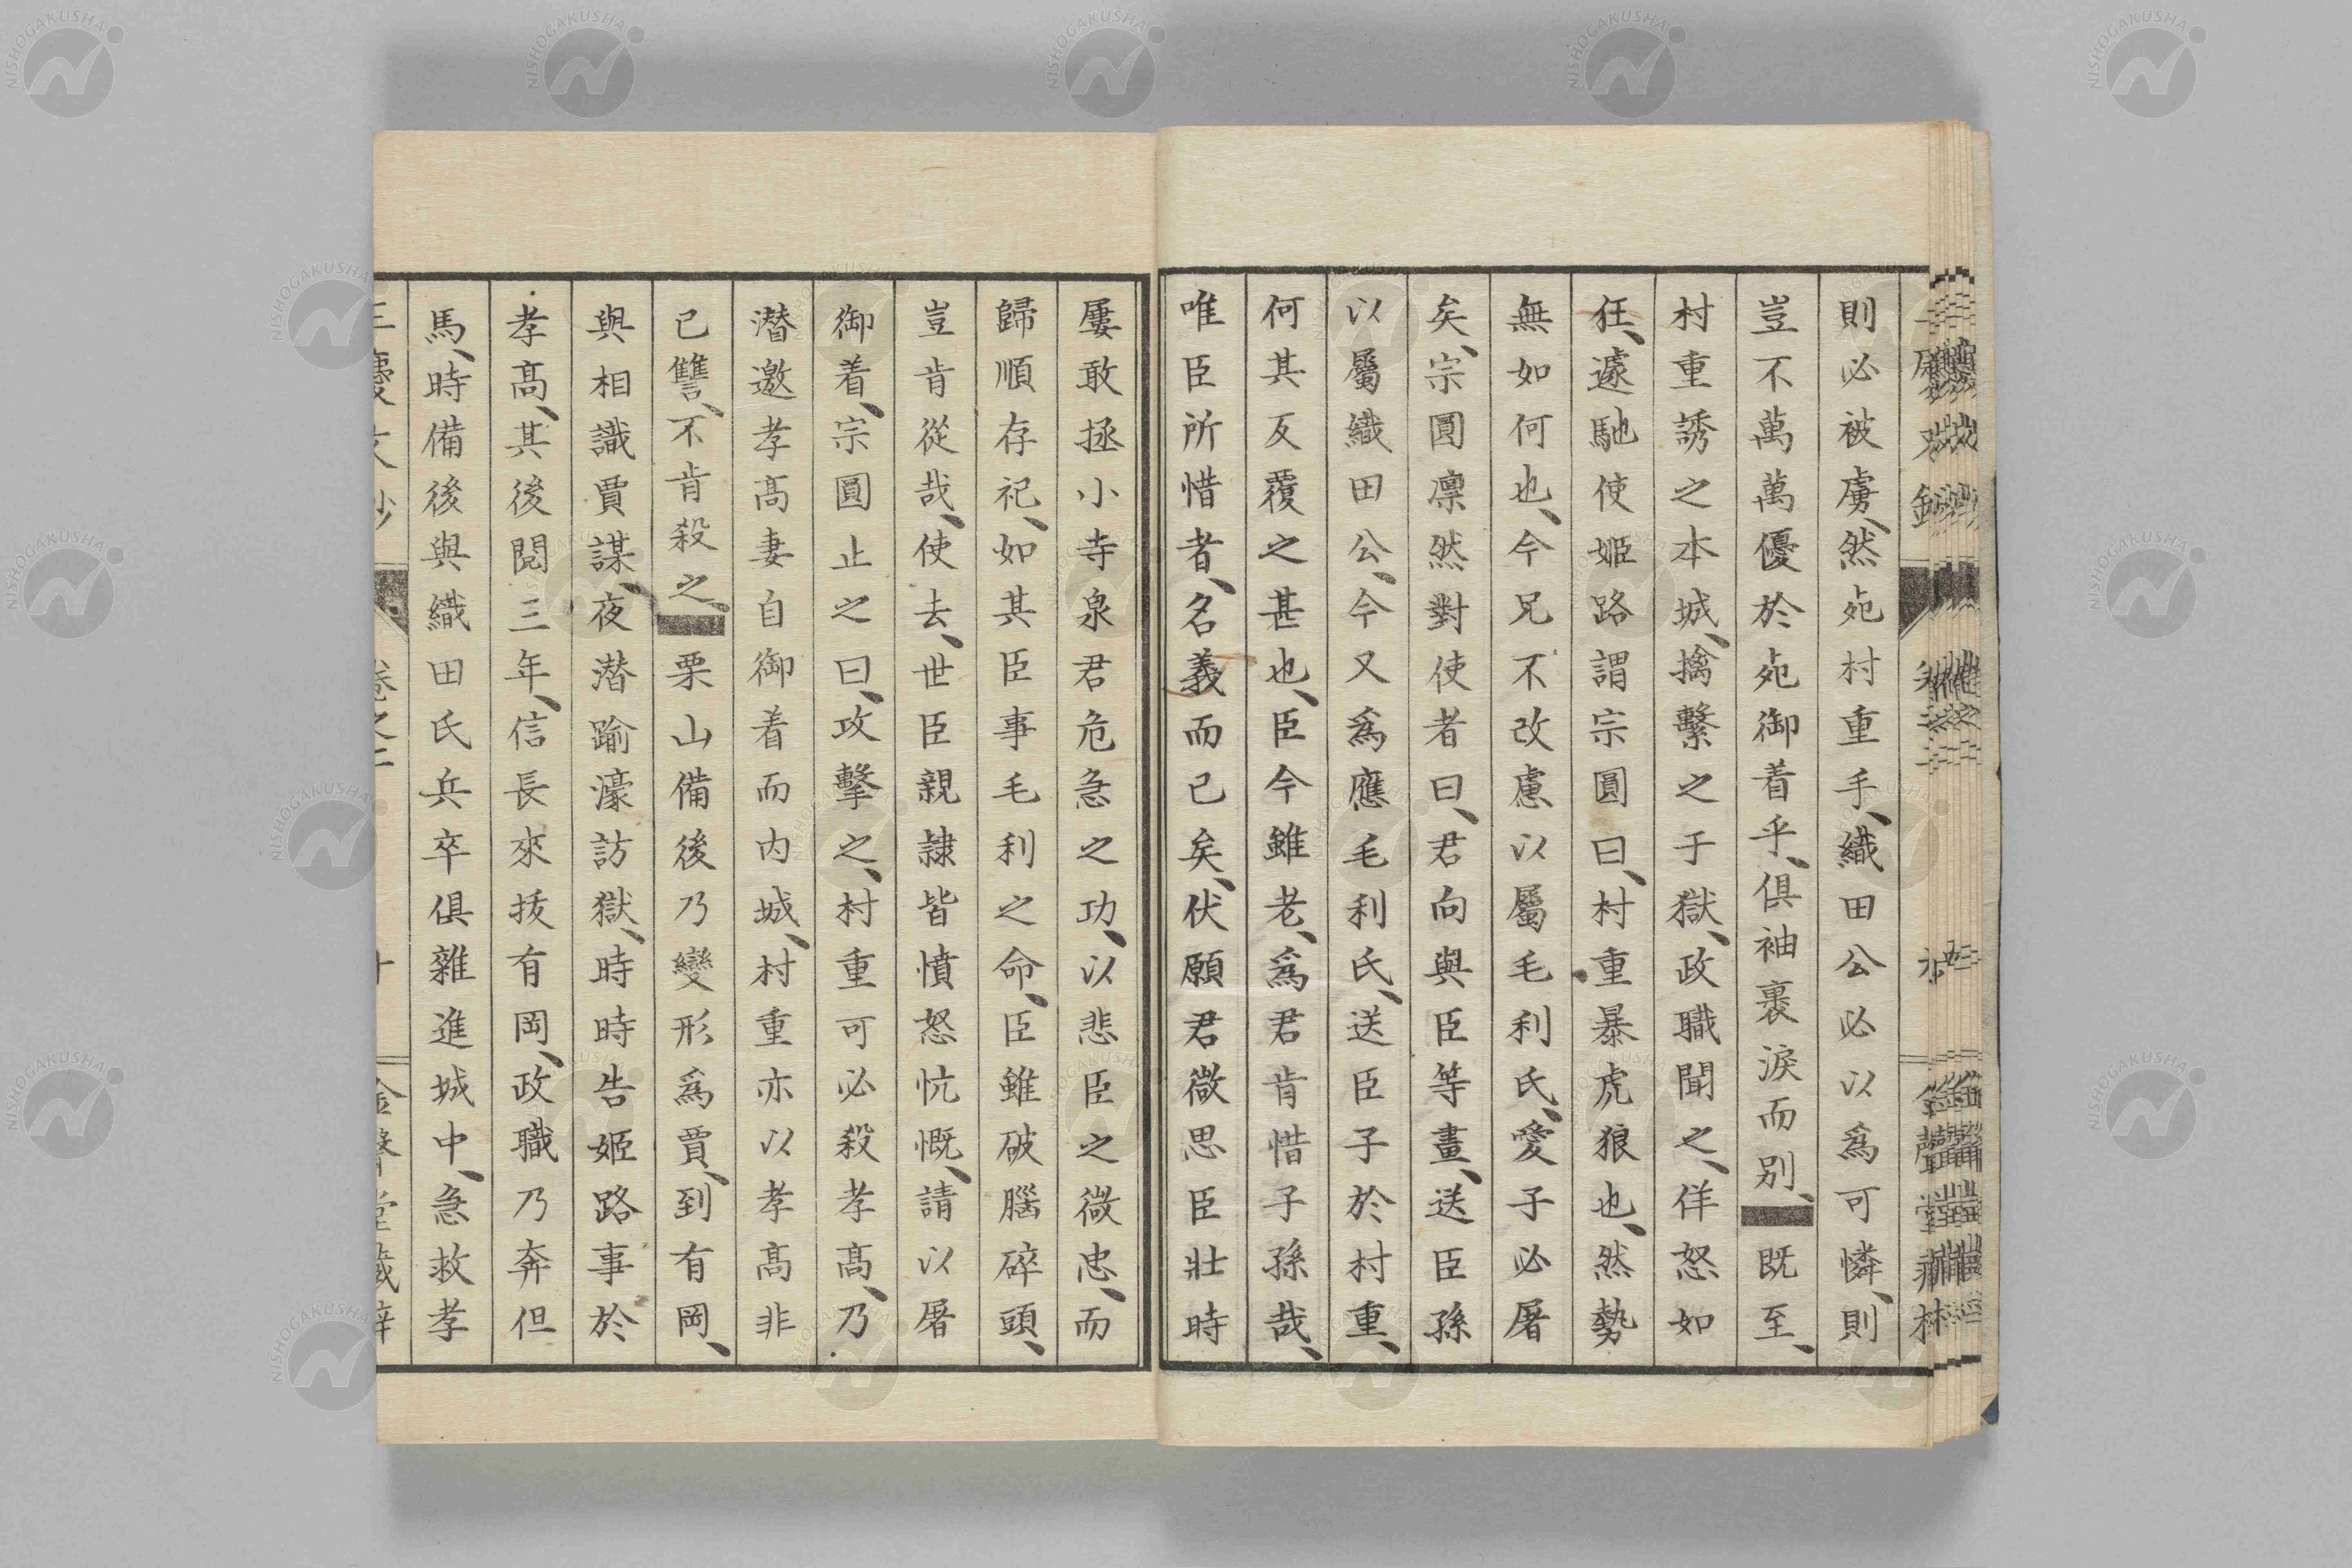 則必被虜、然死村重手、織田公必以爲可憐、則
豈不萬萬優於死御着乎、俱袖裹淚而別、既至、
村重誘之本城、擒繫之于獄、政職聞之、佯怒如
狂、遽馳使姬路謂宗圓曰、村重暴虎狼也、然勢
無如何也、今兄不改慮以屬毛利氏、愛子必屠
矣、宗圓凛然對使者曰、君向與臣等畫、送臣孫
以屬織田公、今又爲應毛利氏、送臣子於村重、
何其反覆之甚也、臣今雖老、爲君肯惜子孫哉、
唯臣所惜者、名義而已矣、伏願君微思臣壯時
屢敢拯小寺泉君危急之功、以悲臣之微忠、而
歸順存祀、如其臣事毛利之命、臣雖破腦碎頭、
豈肯從哉、使去、世臣親隷皆憤怒忼慨、請以屠
御着、宗圓止之曰、攻擊之、村重可必殺孝高、乃
潜邀孝高妻自御着而内城、村重亦以孝高非
已讐、不肯殺之、栗山備後乃變形爲賈、到有岡、
與相識賈謀、夜潜踰濠訪獄、時時告姬路事於
孝高、其後閲三年、信長來拔有岡、政職乃奔但
馬、時備後與織田氏兵卒俱雜進城中、急救孝
NISHOGAKUSHA